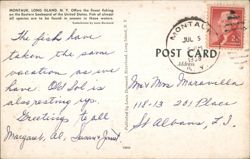 MONTAUK, LONG ISLAND, N. Y. Offers the finest fishing
on the Eastern Seaboard of the United States. Fish of almost
all species are to be found in season in these waters.
MONTAUK
JUL 5
N. Y.
POST CARD
Address
The fish have
taken the same
vacation as we
have. Old Sol is
also resting up.
Greetings to all
Margaret, Al,
Mr & Mrs Maravilla
118-13 201 Place
St Albans, L.I.